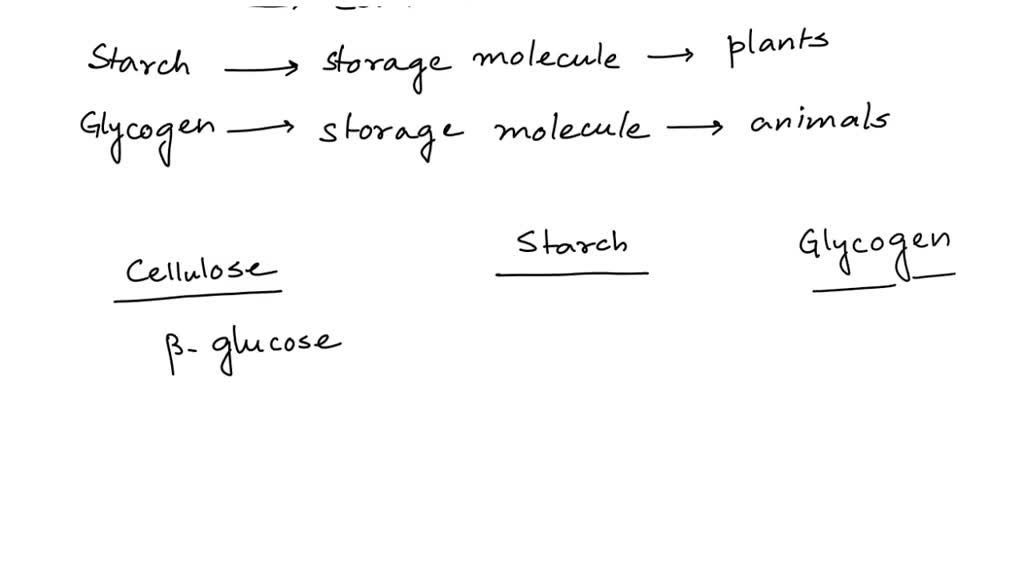 Starch → storage molecule → plants
Glycogen → storage molecule → animals
Cellulose Starch Glycogen
β- glucose